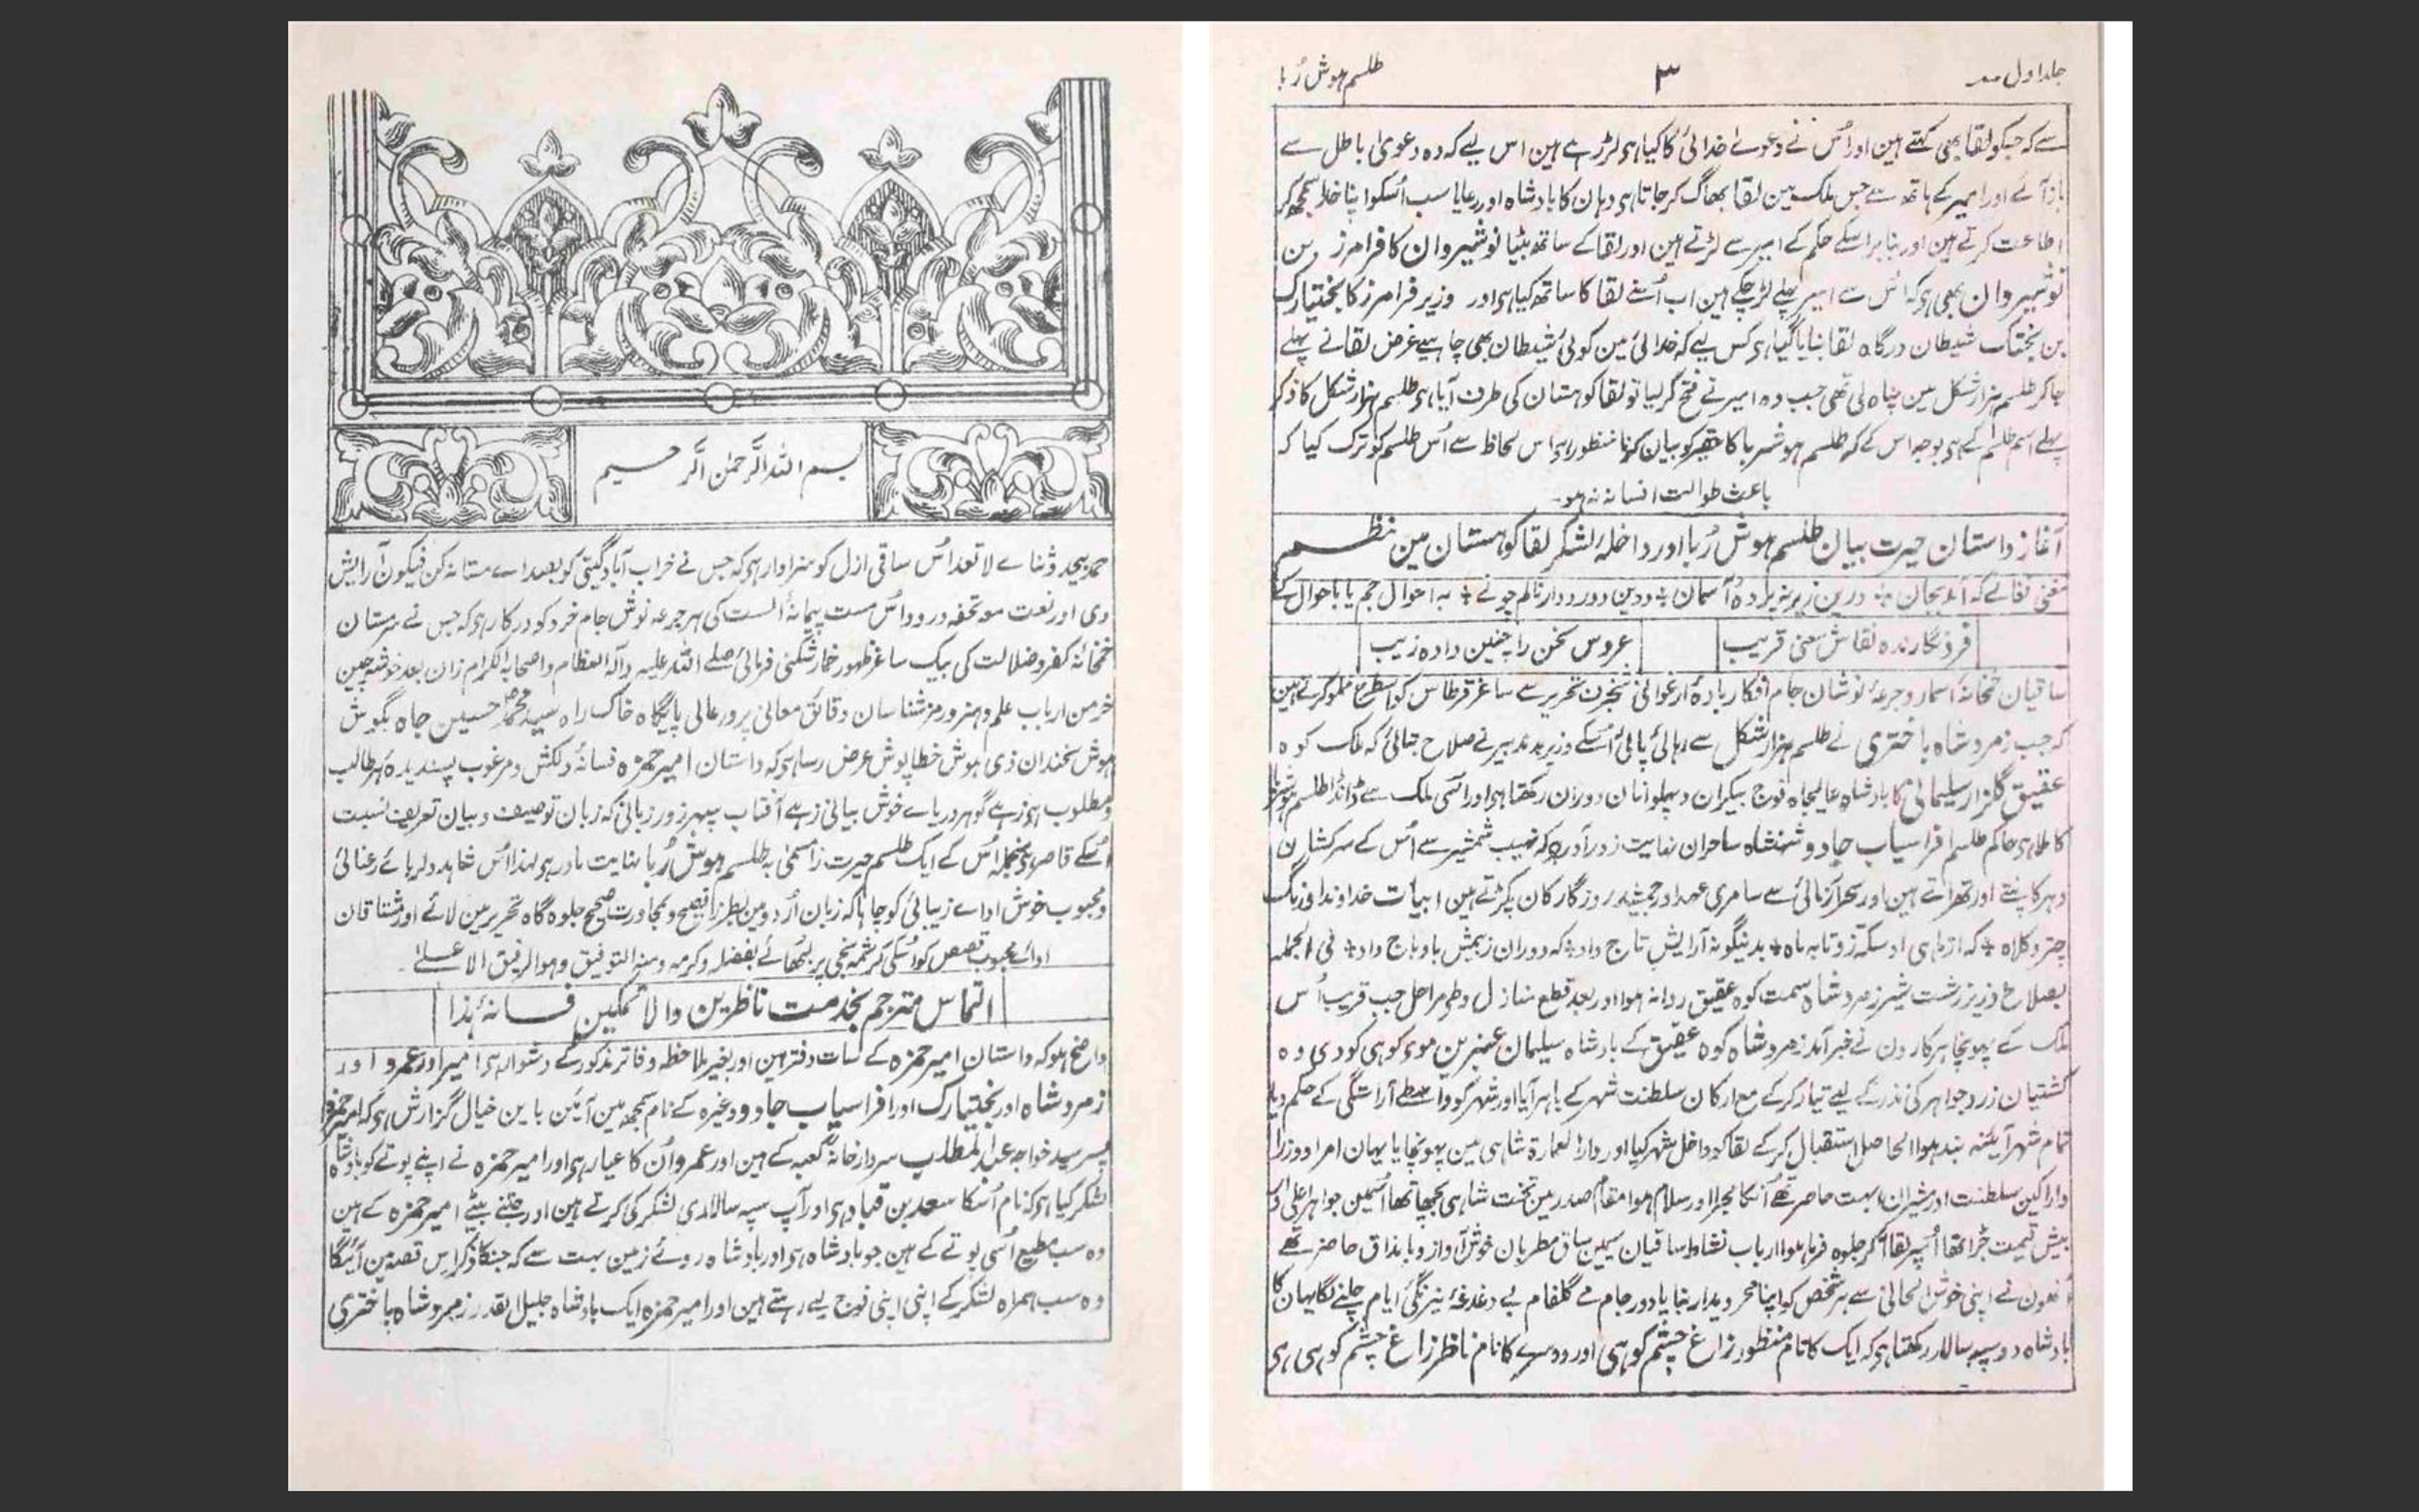 بسم الله الرحمٰن الرحیم
حمد بیحد و ثناے لا تعد اُس ساقی ازل کو سزاوار ہو کہ جس نے خراب آباد گیتی کو بصداے مستانہ کن فیکون آرایش
دی اور نعت مو تحفہ درود اُس مست پیمانۂ الست کی ہر جرعہ نوش جام خرد کو درکار ہو کہ جس نے مستان
خمخانۂ کفر و ضلالت کی بیک ساغر ظہور خمار شکنی فرمائی صلے اللہ علیہ وآلہ العظام واصحابہ الکرام زان بعد خوشہ چین
خرمن ارباب علم و ہنر و رمز شناسان دقائق معانی پرور عالی پایگاہ خاکسار راہ سید محمد حسین جاہ بگوش
ہوش سخندان ذی ہوش خطا پوش عرض رسا ہو کہ داستان امیر حمزہ فسانۂ دلکش و مرغوب پسندیدہ ہر طالب
و مطلوب ہو زہے گوہر دریاے خوش بیانی زہے آفتاب سپہر زور زبانی کہ زبان توصیف و بیان تعریف نسبت
اُسکے قاصر ہو منجملہ اُس کے ایک طلسم حیرت زا مسمیٰ بہ طلسم ہوش رُبا نہایت نادر ہو لہذا اُس شاہد دلرباے رعنائی
و محبوب خوش اداے زیبائی کو چاہا کہ زبان اُردو مین بطرز فصیح و محاورت صحیح جلوہ گاہ تحریر مین لائے اور مشتاقان
اداے محبوب قصص کو اُسکی کرشمہ سنجی پر لبھائے بفضلہ وکرمہ ومنہ التوفیق وہو الرفیق الاعلےٰ
التماس مترجم بخدمت ناظرین والا تمکین فسانۂ ہذا
واضح ہو کہ داستان امیر حمزہ کے سات دفتر ہین اور بغیر ملاحظہ دفاتر مذکور کے دشوار ہو امیر اور عمرو اور
زمرد شاہ اور بختیارک اور افراسیاب جادو وغیرہ کے نام سمجھ مین آئین باین خیال گزارش ہو کہ امیر حمزہ
پسر سید خواجہ عبدالمطلب سردار خانۂ کعبہ کے ہین اور عمرو اُن کا عیار ہو اور امیر حمزہ نے اپنے پوتے کو بادشاہ
لشکر کیا ہو کہ نام اُسکا سعد بن قباد ہو اور آپ سپہ سالاری لشکر کی کرتے ہین اور جتنے بیٹے امیر حمزہ کے ہین
وہ سب مطیع اُسی پوتے کے ہین جو بادشاہ ہو اور بادشاہ روئے زمین بہت سے کہ جنکا ذکر اِس قصہ مین آئیگا
وہ سب ہمراہ لشکر کے اپنی اپنی فوج لیے رہتے ہین اور امیر حمزہ ایک بادشاہ جلیل القدر زمرد شاہ باختری
جلد اول
۳
طلسم ہوش رُبا
سے کہ جسکو لقا بھی کہتے ہین اور اُس نے دعوے خدائی کا کیا ہو لڑ رہے ہین اس لیے کہ وہ دعویٰ باطل سے
باز آئے اور امیر کے ہاتھ سے جس ملک مین لقا بھاگ کر جاتا ہو وہان کا بادشاہ اور رعایا سب اُسکو اپنا خدا سمجھ کر
اطاعت کرتے ہین اور بنا بر اسکے حکم کے امیر سے لڑتے ہین اور لقا کے ساتھ بیٹا نوشیروان کا فرامرز بن
نوشیروان بھی ہو کہ اُس سے امیر پہلے لڑ چکے ہین اب اُسنے لقا کا ساتھ کیا ہو اور وزیر فرامرز کا بختیارک
بن بختک شیطان درگاہ لقا بنایا گیا ہو کس لیے کہ خدائی مین کوئی شیطان بھی چاہیے غرض لقا نے پہلے
جا کر طلسم ہزار شکل مین پناہ لی تھی جب وہ امیر نے فتح کر لیا تو لقا کوہستان کی طرف آیا ہو طلسم ہزار شکل کا ذکر
پہلے اسم طلسم کے ہو بوجہ اس کے کہ طلسم ہوشربا کا حقیر کو بیان کرنا منظور ہو اس لحاظ سے اُس طلسم کو ترک کیا کہ
باعث طوالت افسانہ نہ ہو۔
آغاز داستان حیرت بیان طلسم ہوش رُبا اور داخلۂ لشکر لقا کوہستان مین نظم
فرو نگارندہ نقاش معنی قریب
عروس سخن را چنین دادہ زیب
ساقیان خمخانۂ اسمار و جرعہ نوشان جام افکار بادۂ ارغوانی شنجرف تحریر سے ساغر قرطاس کو اسطرح مملو کرتے ہین
کہ جب زمرد شاہ باختری نے طلسم ہزار شکل سے رہائی پائی اُسکے وزیر بد تدبیر نے صلاح بتائی کہ ملک کوہ
عقیق گلزار سلیمانی کا بادشاہ عالیجاہ فوج بیکران و پہلوانان دوران رکھتا ہو اور اُسی ملک سے ڈانڈا طلسم ہوشربا
کا ملا ہو حاکم طلسم افراسیاب جادو شہنشاہ ساحران نہایت زور آور ہو کہ نہیب شمشیر سے اُس کے سرکشان
دہر کانپتے اور تھراتے ہین اور سحر آزمائی سے سامری عہد اور جمشید روزگار کان پکڑتے ہین ابیات خداوند اورنگ
چتر و کلاہ ÷ کہ از ماہی او سکہ زد تا بہ ماہ ÷ بدینگونہ آرایش تاج داد ÷ کہ دوران زبیمش باو باج داد ÷ فی الجملہ
بصلاح وزیر زشت شیر زمرد شاہ سمت کوہ عقیق روانہ ہوا اور بعد قطع منازل و طے مراحل جب قریب اُس
ملک کے پہونچا ہرکارون نے خبر آمد زمرد شاہ کوہ عقیق کے بادشاہ سلیمان عنبرین موے کوہی کو دی وہ
کشتیان زر و جواہر کی نذر کے لیے تیار کر کے مع ارکان سلطنت شہر کے باہر آیا اور شہر کو واسطے آراستگی کے حکم دیا
تمام شہر آئینہ بند ہوا الحاصل استقبال کر کے لقا کو داخل شہر کیا اور دار العمارۃ شاہی مین پہونچایا یہان امرا و وزرا
و اراکین سلطنت اور مشیران بہت حاضر تھے اُنکا مجرا اور سلام ہوا مقام صدر مین تخت شاہی بچھا تھا اُسمین جواہر اعلیٰ اور
بیش قیمت جڑا تھا اُسپر لقا آ کر جلوہ فرما ہوا ارباب نشاط ساقیان سیمین ساق مطربان خوش آواز و با مذاق حاضر تھے
اُنھون نے اپنی خوش الحانی سے ہر شخص کو اپنا محو دیدار بنایا دور جام مے گلفام بے دغدغہ نیرنگی ایام چلنے لگا یہان کا
بادشاہ دو سپہ سالار رکھتا ہو کہ ایک کا نام منظور زاغ چشم کوہی اور دوسرے کا نام ناظر زاغ چشم کوہی ہو